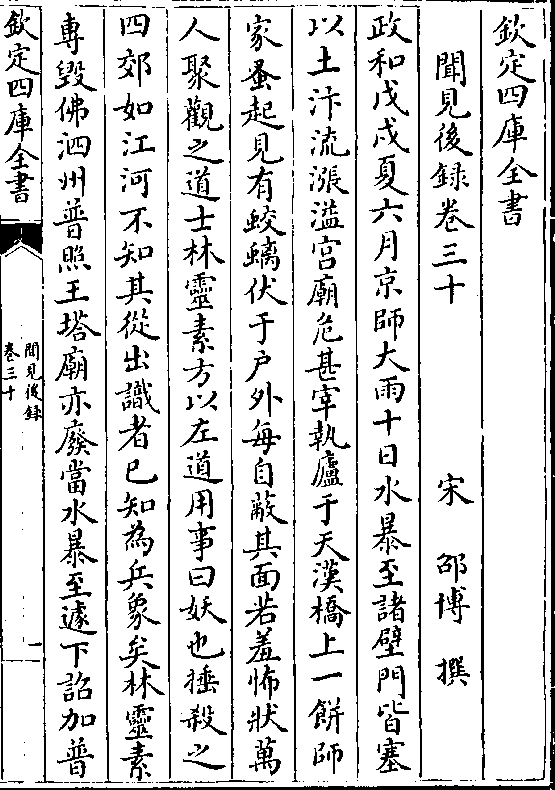 欽定四庫全書
聞見後録卷三十
宋 邵博 撰
政和戊戌夏六月京師大雨十日水暴至諸壁門皆塞
以土汴流漲溢宫廟危甚宰執廬于天漢橋上一餅師
家蚤起見有蛟螭伏于户外每自蔽其面若羞怖狀萬
人聚觀之道士林靈素方以左道用事曰妖也捶殺之
四郊如江河不知其從出識者已知為兵象矣林靈素
専毀佛泗州普照王塔廟亦廢當水暴至遽下詔加普
欽定四庫全書
聞見後録
卷三十
一